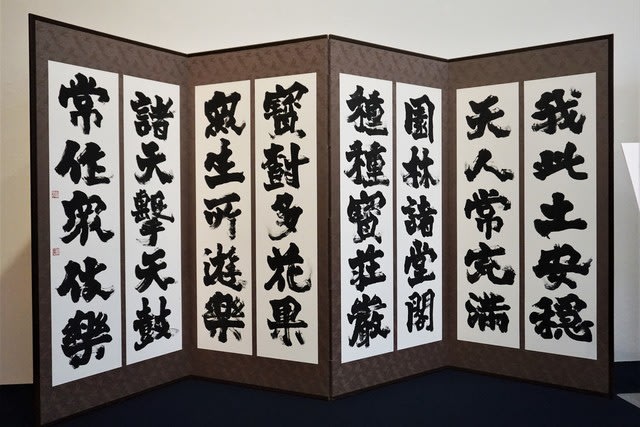 我此土安穏
天人常充滿
園林諸堂閣
種種寶荘嚴
寶樹多花果
衆生所遊樂
諸天擊天鼓
常作衆伎樂